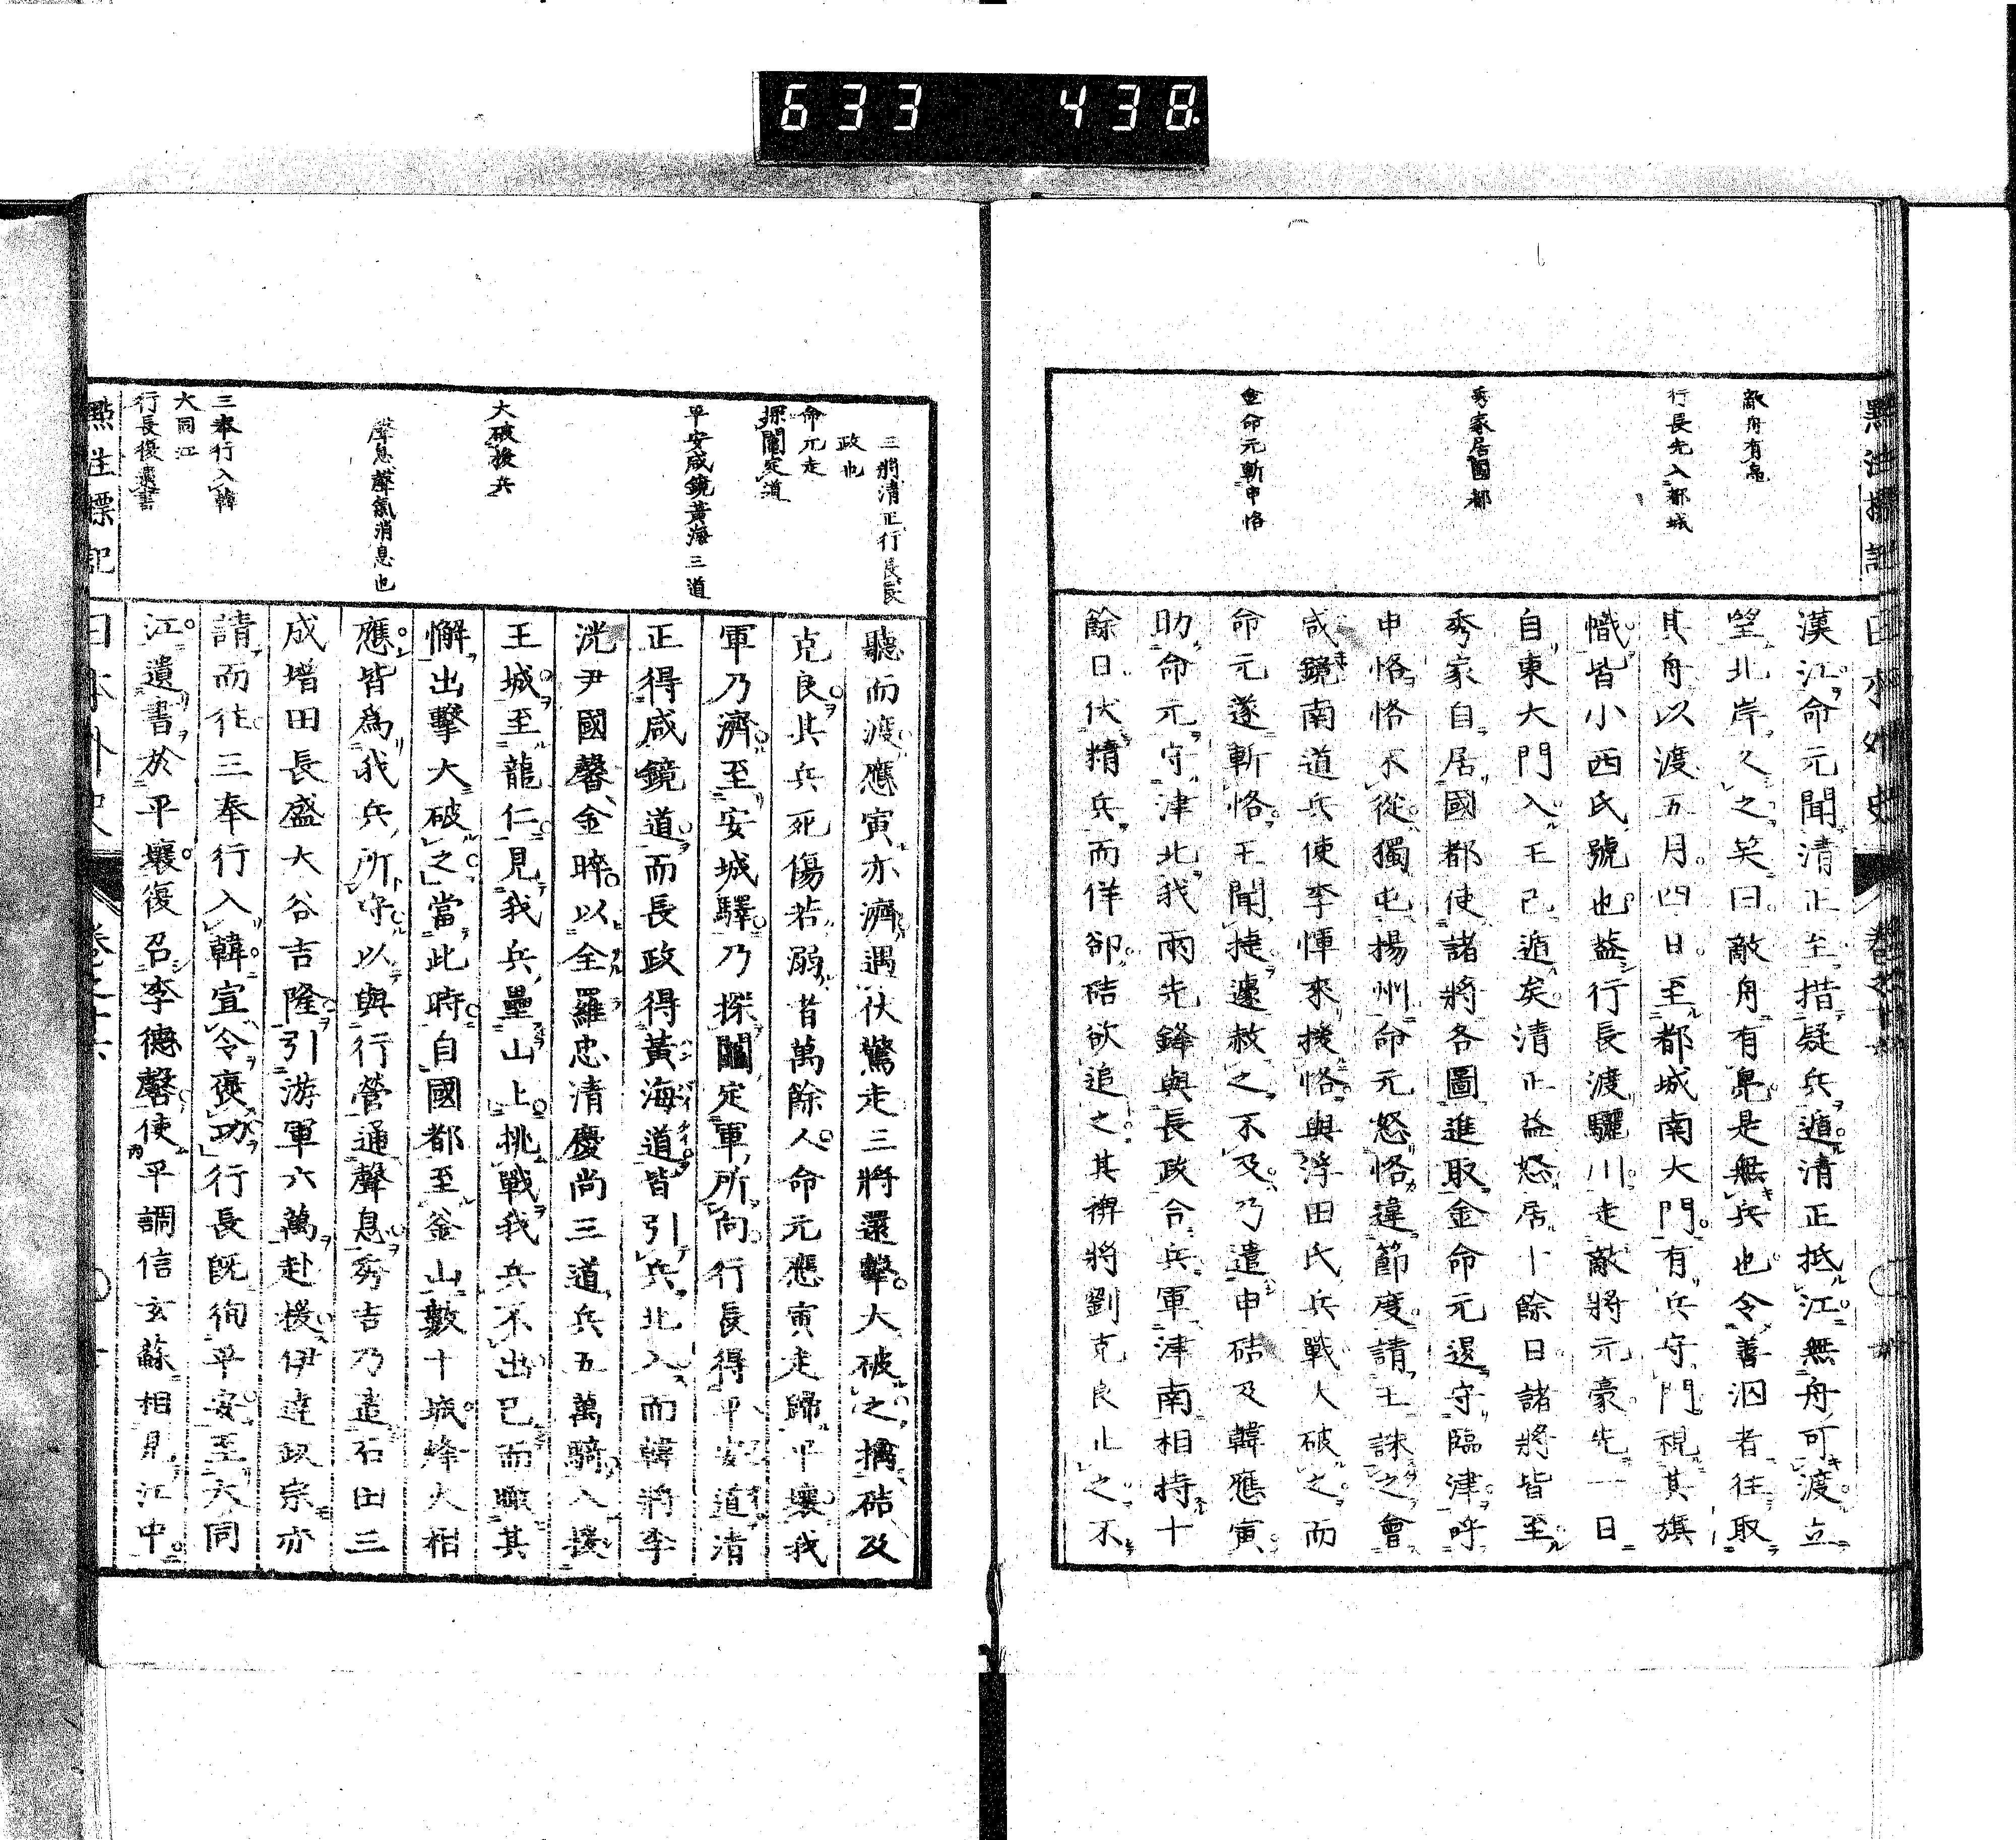 633 438
敵舟有鳧
行長先入都城
秀家居國都
金命元斬申恪
漢江命元聞清正至措疑兵遁清正抵江無舟可渡立
望北岸久之笑曰敵舟有鳧是無兵也令善泅者往取
其舟以渡五月四日至都城南大門有兵守門視其旗
幟皆小西氏號也蓋行長渡驪川走敵將元豪先一日
自東大門入王已遁矣清正益怒居十餘日諸將皆至
秀家自居國都使諸將各圖進取金命元退守臨津呼
申恪恪不從獨屯揚州命元怒恪違節度請王誅之會
咸鏡南道兵使李惲來援恪與浮田氏兵戰大破之而
命元遂斬恪王聞捷遽赦之不及乃遣申硈及韓應寅
助命元守津北我兩先鋒與長政合兵軍津南相持十
餘日伏精兵而佯卻硈欲追之其裨將劉克良止之不
三將清正行長長
政也
命元走
探鬮定道
平安咸鏡黃海三道
大破援兵
聲息聲氣消息也
三奉行入韓
大同江
行長復遺書
聽而渡應寅亦濟遇伏驚走三將還擊大破之擒硈及
克良其兵死傷若溺者萬餘人命元應寅走歸平壤我
軍乃濟至安城驛乃探鬮定軍所向行長得平安道清
正得咸鏡道而長政得黃海道皆引兵北入而韓將李
洸尹國馨金睟以全羅忠清慶尚三道兵五萬騎入援
王城至龍仁見我兵壘山上挑戰我兵不出已而瞰其
懈出擊大破之當此時自國都至釜山數十城烽火相
應皆為我兵所守以與行營通聲息秀吉乃遣石田三
成増田長盛大谷吉隆引游軍六萬赴援伊達政宗亦
請而往三奉行入韓宣令褒功行長既徇平安至大同
江遺書於平壤復召李德馨使平調信玄蘇相見江中
點注標記
日本外史
卷之十六